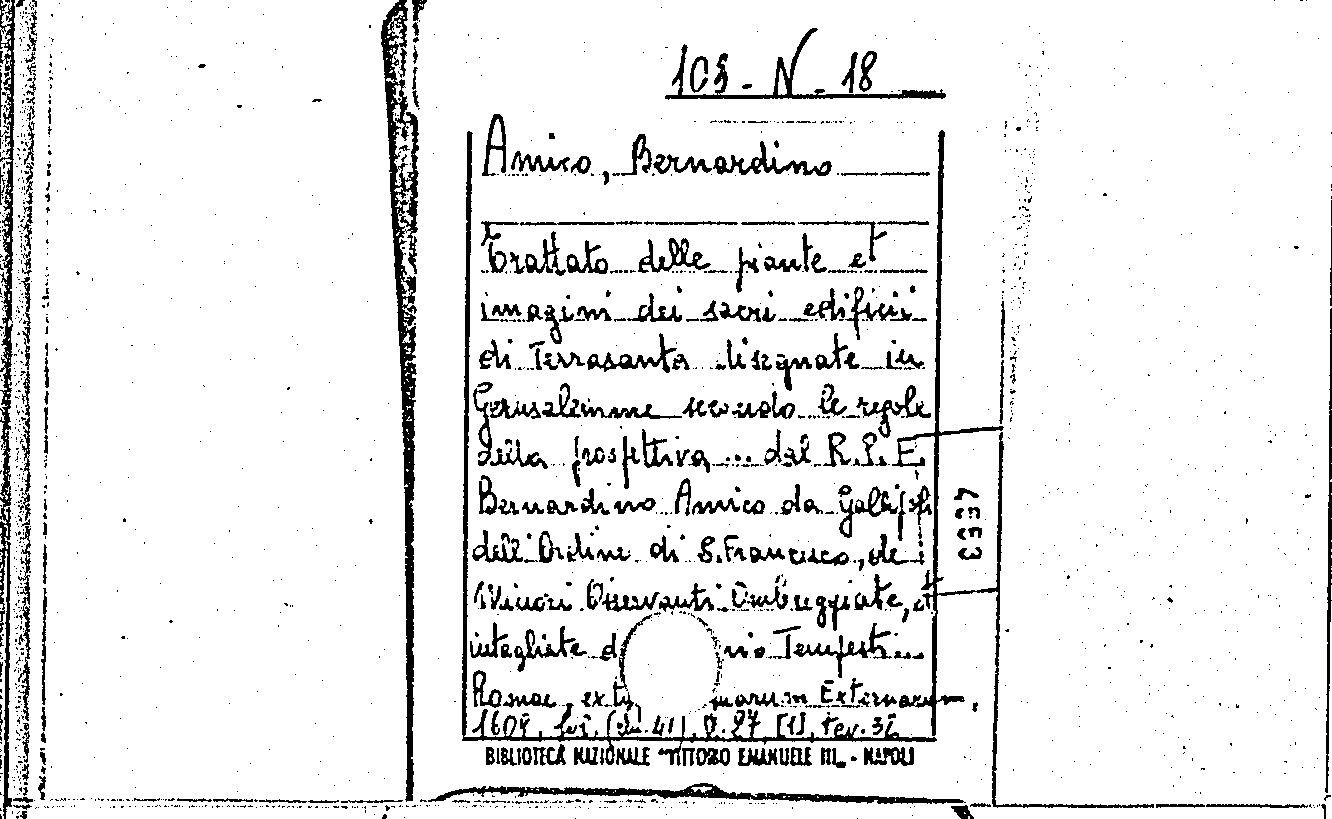 103 - N - 18
Amico, Bernardino
Trattato delle piante et
imagini dei sacri edificii
di Terrasanta disegnate in
Gerusalemme secondo le regole
della prospettiva ... dal R.P.F.
Bernardino Amico da Gallipoli
dell'Ordine di S. Francesco, de
Minori Osservanti. Ombreggiate, et
intagliate d nio Tempesti...
Romae, ext arum Externarum,
1609, fol. 27, [1], tav. 32
BIBLIOTECA NAZIONALE "VITTORIO EMANUELE III" - NAPOLI